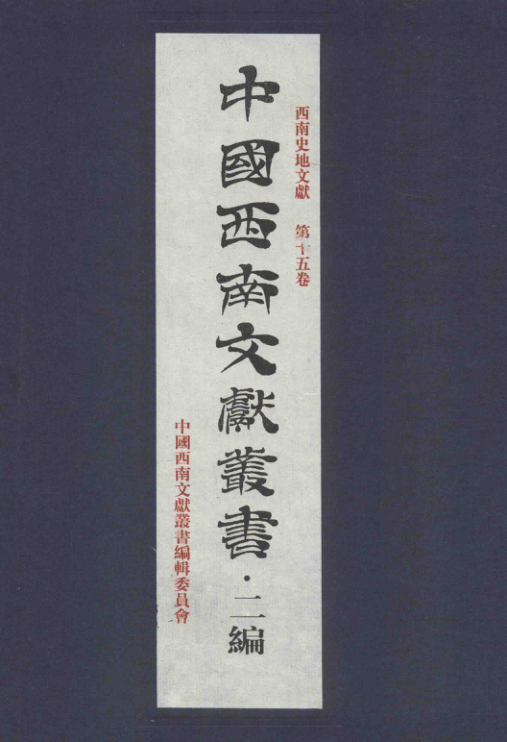 西南史地文獻　第十五卷
中國西南文獻叢書·二編
中國西南文獻叢書編輯委員會